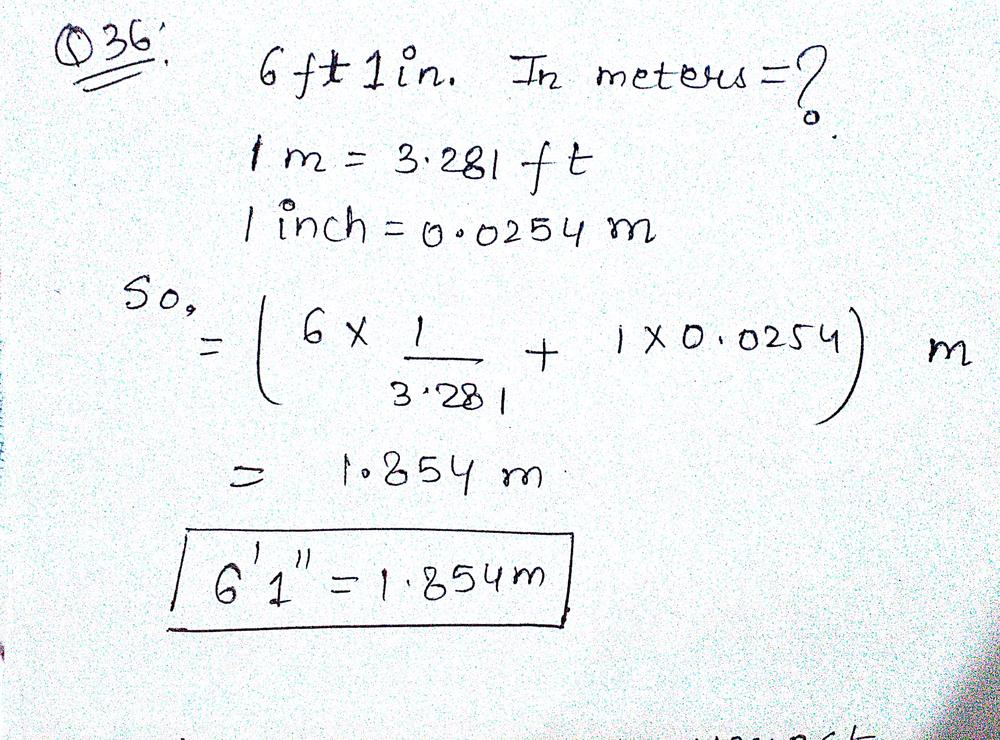 Q36:
6 ft 1 in. In meters = ?
1 m = 3.281 ft
1 inch = 0.0254 m
So,
= ( 6 × 1/3.281 + 1 × 0.0254 ) m
= 1.854 m
6' 1" = 1.854 m